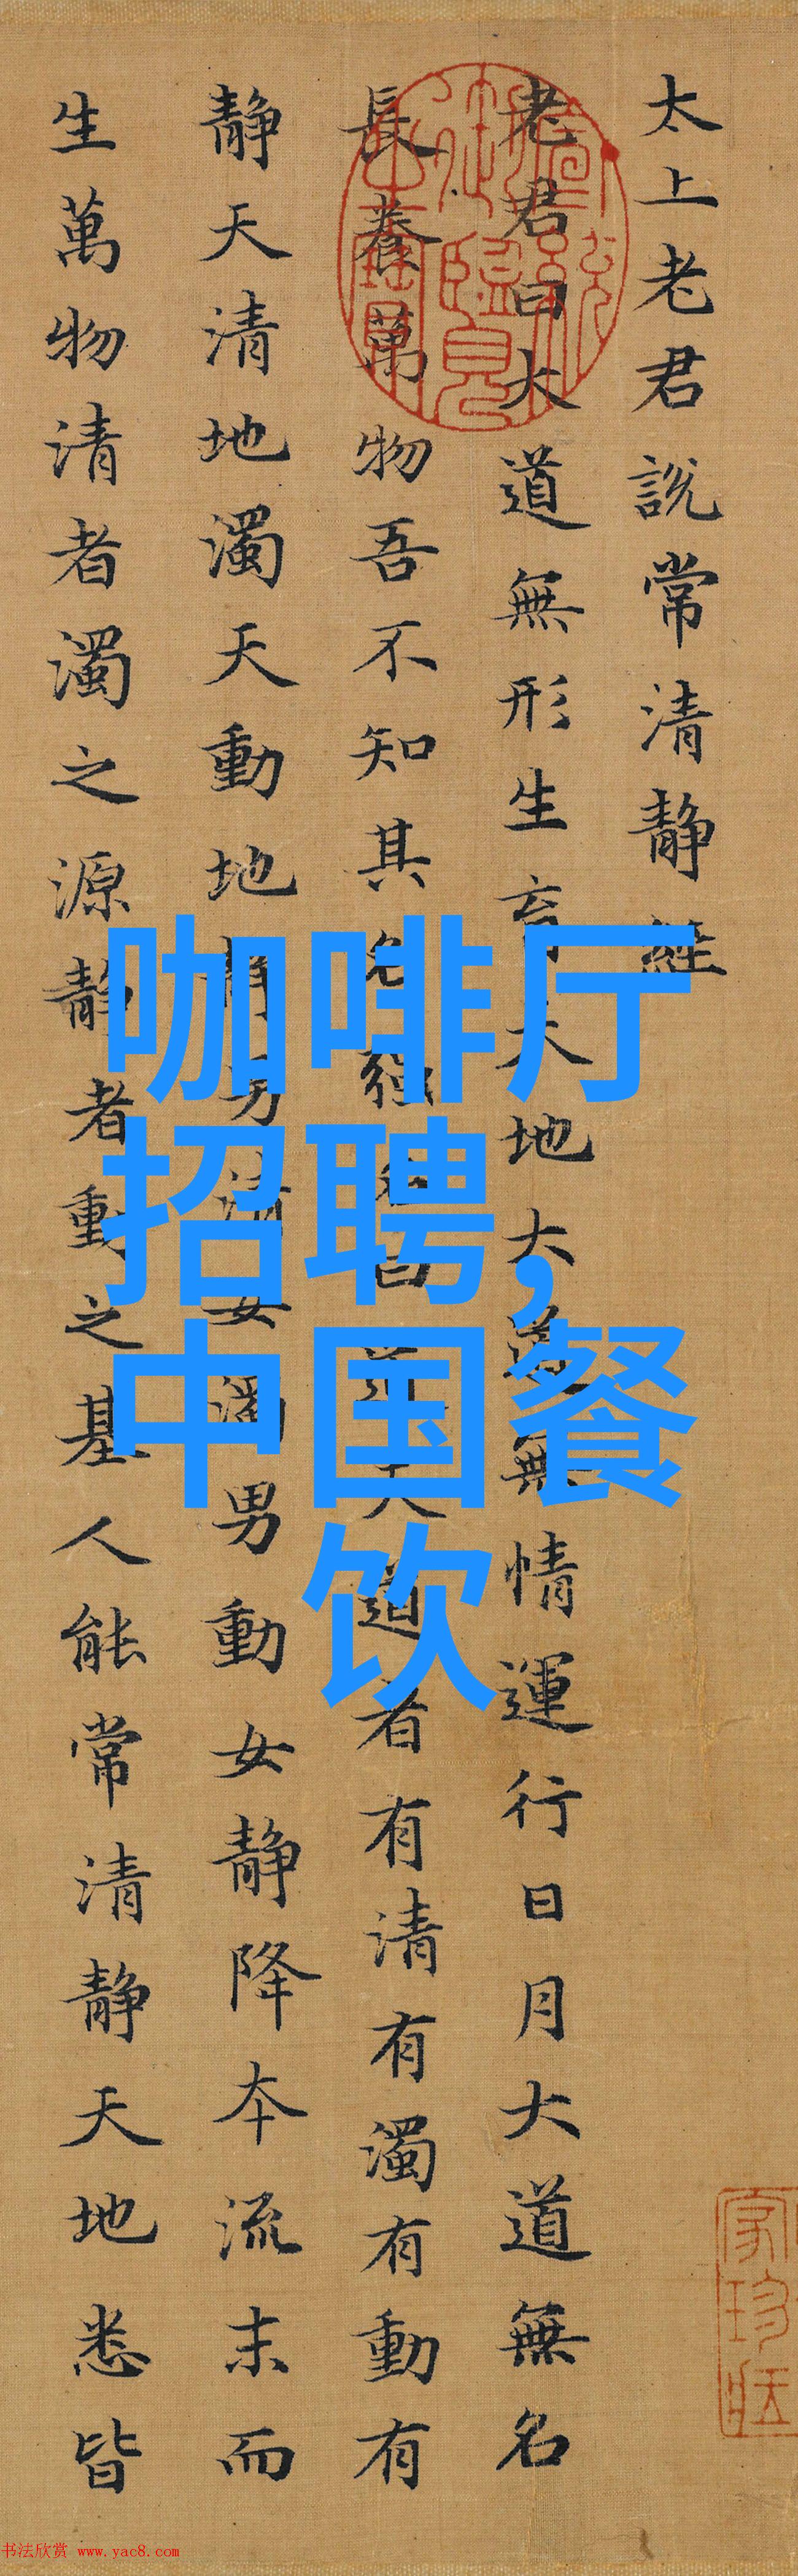 太上老君說常清静經
老君曰大道無形生育天地大道無情運行日月大道無名
長養萬物吾不知其名强名曰道夫道者有清有濁有動有
静天清地濁天動地静男清女濁男動女静降本流末而
生萬物清者濁之源静者動之基人能常清静天地悉皆
咖啡厅
招聘,
中国餐
饮
书法欣赏 www.yac8.com